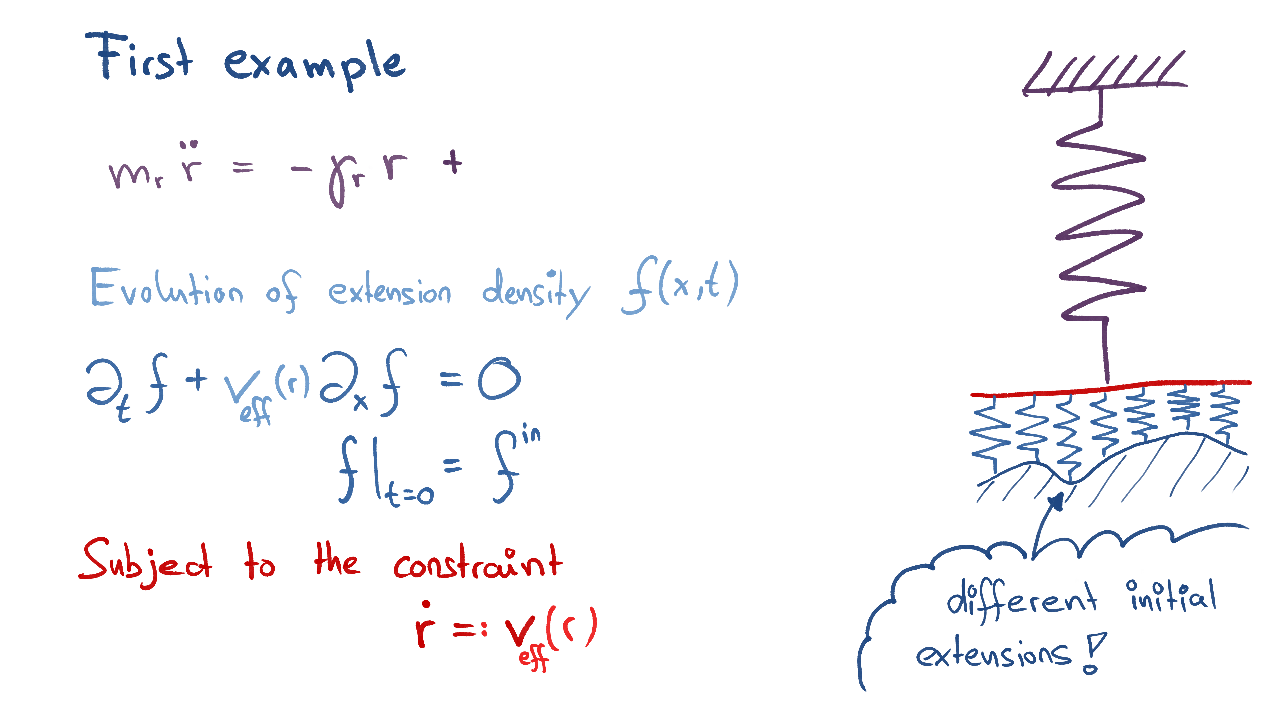 First example
mᵣ r̈ = - γᵣ r +
Evolution of extension density f(x,t)
∂ₜ f + v_eff(r) ∂ₓ f = 0
f|ₜ₌₀ = fⁱⁿ
Subject to the constraint
ṙ =: v_eff(r)
different initial
extensions!